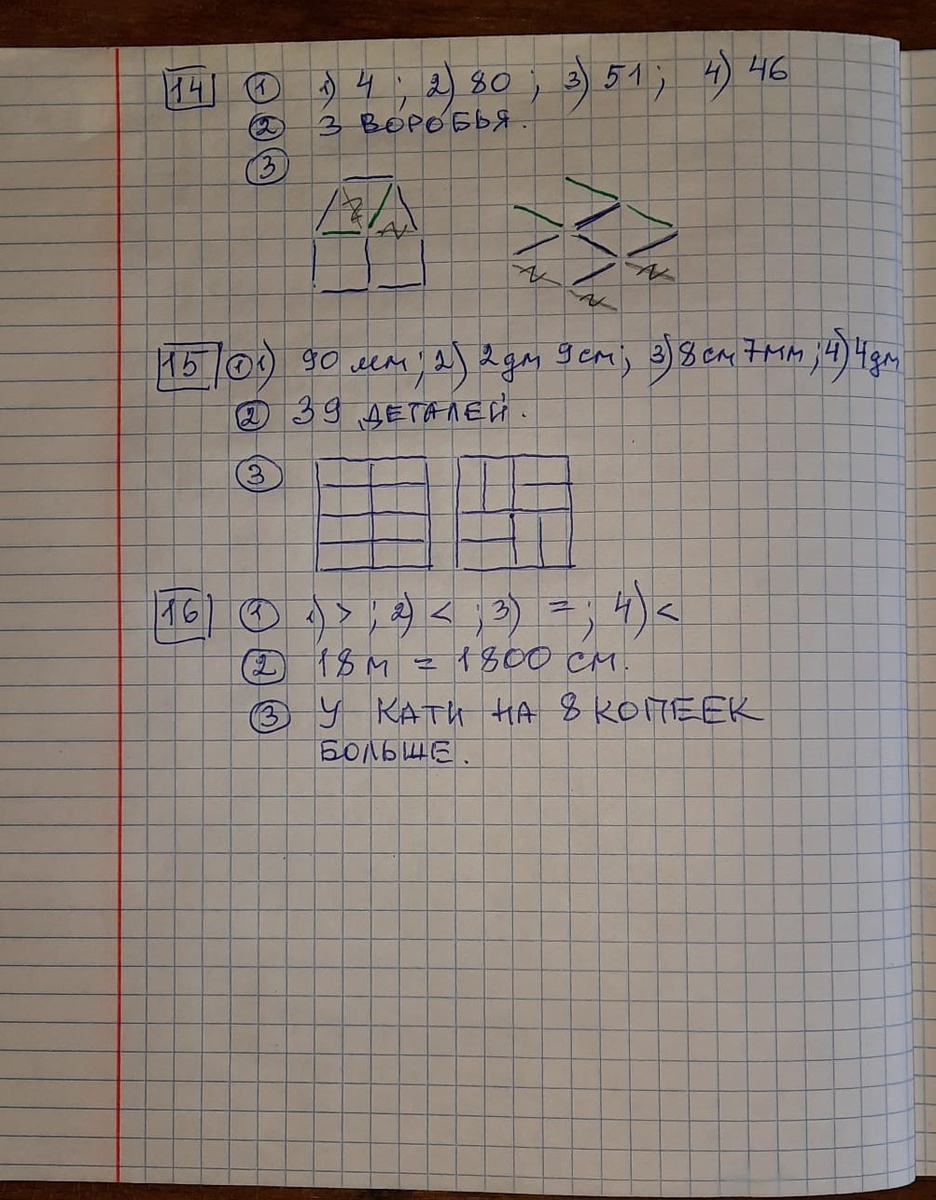 14 1 1) 4 ; 2) 80 ; 3) 51 ; 4) 46
2 3 ВОРОБЬЯ.
3
15 1 1) 90 мм ; 2) 2 дм 9 см ; 3) 8 см 7 мм ; 4) 4 дм
2 39 ДЕТАЛЕЙ.
3
16 1 1) > ; 2) < ; 3) = ; 4) <
2 18 м = 1800 см.
3 У КАТИ НА 8 КОПЕЕК
БОЛЬШЕ.